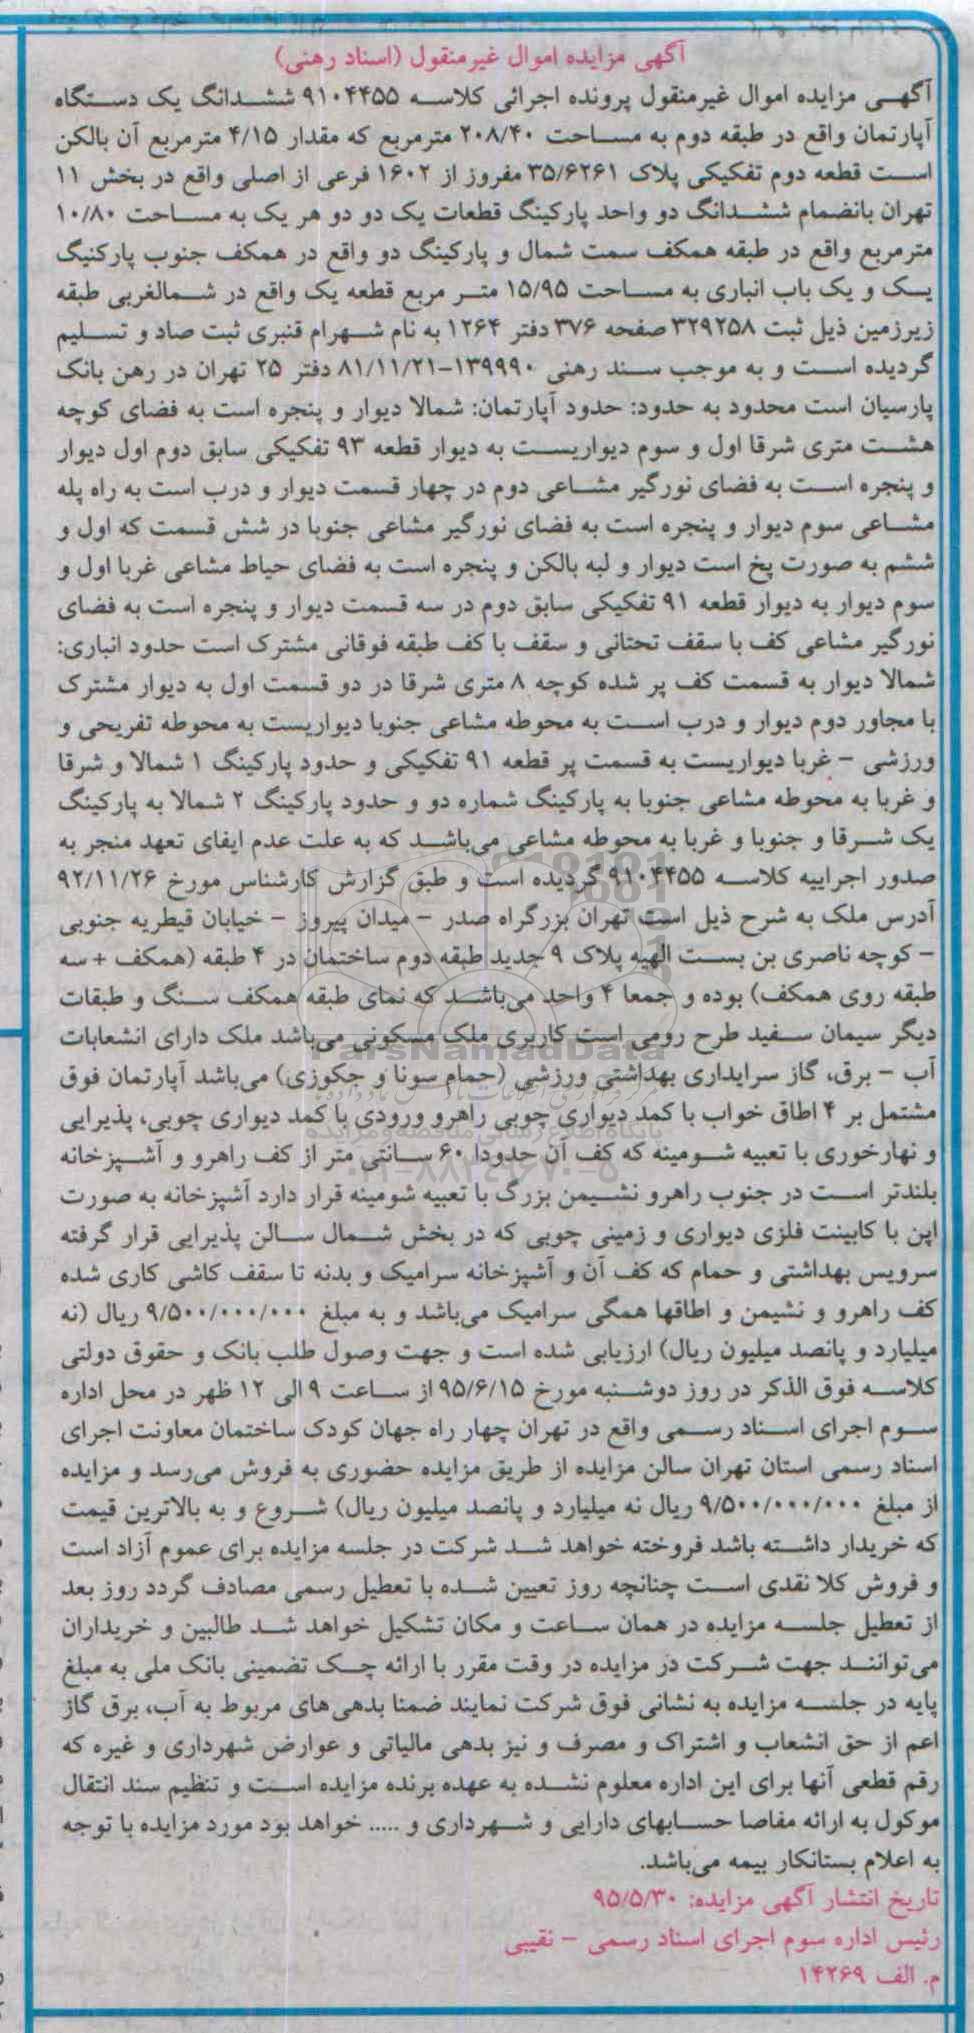 آگهی مزایده اموال غیرمنقول (اسناد رهنی)
آگهی مزایده اموال غیرمنقول پرونده اجرائی کلاسه ۹۱۰۴۴۵۵ ششدانگ یک دستگاه
آپارتمان واقع در طبقه دوم به مساحت ۲۰۸/۴۰ مترمربع که مقدار ۴/۱۵ مترمربع آن بالکن
است قطعه دوم تفکیکی پلاک ۳۵/۶۲۶۱ مفروز از ۱۶۰۲ فرعی از اصلی واقع در بخش ۱۱
تهران بانضمام ششدانگ دو واحد پارکینگ قطعات یک دو دو هر یک به مساحت ۱۰/۸۰
مترمربع واقع در طبقه همکف سمت شمال و پارکینگ دو واقع در همکف جنوب پارکنیگ
یک و یک باب انباری به مساحت ۱۵/۹۵ متر مربع قطعه یک واقع در شمالغربی طبقه
زیرزمین ذیل ثبت ۳۲۹۲۵۸ صفحه ۳۷۶ دفتر ۱۲۶۴ به نام شهرام قنبری ثبت صاد و تسلیم
گردیده است و به موجب سند رهنی ۱۳۹۹۹۰-۸۱/۱۱/۲۱ دفتر ۲۵ تهران در رهن بانک
پارسیان است محدود به حدود: حدود آپارتمان: شمالا دیوار و پنجره است به فضای کوچه
هشت متری شرقا اول و سوم دیواریست به دیوار قطعه ۹۳ تفکیکی سابق دوم اول دیوار
و پنجره است به فضای نورگیر مشاعی دوم در چهار قسمت دیوار و درب است به راه پله
مشاعی سوم دیوار و پنجره است به فضای نورگیر مشاعی جنوبا در شش قسمت که اول و
ششم به صورت پخ است دیوار و لبه بالکن و پنجره است به فضای حیاط مشاعی غربا اول و
سوم دیوار به دیوار قطعه ۹۱ تفکیکی سابق دوم در سه قسمت دیوار و پنجره است به فضای
نورگیر مشاعی کف با سقف تحتانی و سقف با کف طبقه فوقانی مشترک است حدود انباری:
شمالا دیوار به قسمت کف پر شده کوچه ۸ متری شرقا در دو قسمت اول به دیوار مشترک
با مجاور دوم دیوار و درب است به محوطه مشاعی جنوبا دیواریست به محوطه تفریحی و
ورزشی – غربا دیواریست به قسمت پر قطعه ۹۱ تفکیکی و حدود پارکینگ ۱ شمالا و شرقا
و غربا به محوطه مشاعی جنوبا به پارکینگ شماره دو و حدود پارکینگ ۲ شمالا به پارکینگ
یک شرقا و جنوبا و غربا به محوطه مشاعی می‌باشد که به علت عدم ایفای تعهد منجر به
صدور اجراییه کلاسه ۹۱۰۴۴۵۵ گردیده است و طبق گزارش کارشناس مورخ ۹۲/۱۱/۲۶
آدرس ملک به شرح ذیل است تهران بزرگراه صدر – میدان پیروز – خیابان قیطریه جنوبی
– کوچه ناصری بن بست الهیه پلاک ۹ جدید طبقه دوم ساختمان در ۴ طبقه (همکف + سه
طبقه روی همکف) بوده و جمعا ۴ واحد می‌باشد که نمای طبقه همکف سنگ و طبقات
دیگر سیمان سفید طرح رومی است کاربری ملک مسکونی می‌باشد ملک دارای انشعابات
آب – برق، گاز سرایداری بهداشتی ورزشی (حمام سونا و جکوزی) می‌باشد آپارتمان فوق
مشتمل بر ۴ اطاق خواب با کمد دیواری چوبی راهرو ورودی با کمد دیواری چوبی، پذیرایی
و نهارخوری با تعبیه شومینه که کف آن حدودا ۶۰ سانتی متر از کف راهرو و آشپزخانه
بلندتر است در جنوب راهرو نشیمن بزرگ با تعبیه شومینه قرار دارد آشپزخانه به صورت
اپن با کابینت فلزی دیواری و زمینی چوبی که در بخش شمال سالن پذیرایی قرار گرفته
سرویس بهداشتی و حمام که کف آن و آشپزخانه سرامیک و بدنه تا سقف کاشی کاری شده
کف راهرو و نشیمن و اطاقها همگی سرامیک می‌باشد و به مبلغ ۹/۵۰۰/۰۰۰/۰۰۰ ریال (نه
میلیارد و پانصد میلیون ریال) ارزیابی شده است و جهت وصول طلب بانک و حقوق دولتی
کلاسه فوق الذکر در روز دوشنبه مورخ ۹۵/۶/۱۵ از ساعت ۹ الی ۱۲ ظهر در محل اداره
سوم اجرای اسناد رسمی واقع در تهران چهار راه جهان کودک ساختمان معاونت اجرای
اسناد رسمی استان تهران سالن مزایده از طریق مزایده حضوری به فروش می‌رسد و مزایده
از مبلغ ۹/۵۰۰/۰۰۰/۰۰۰ ریال نه میلیارد و پانصد میلیون ریال) شروع و به بالاترین قیمت
که خریدار داشته باشد فروخته خواهد شد شرکت در جلسه مزایده برای عموم آزاد است
و فروش کلا نقدی است چنانچه روز تعیین شده با تعطیل رسمی مصادف گردد روز بعد
از تعطیل جلسه مزایده در همان ساعت و مکان تشکیل خواهد شد طالبین و خریداران
می‌توانند جهت شرکت در مزایده در وقت مقرر با ارائه چک تضمینی بانک ملی به مبلغ
پایه در جلسه مزایده به نشانی فوق شرکت نمایند ضمنا بدهی های مربوط به آب، برق گاز
اعم از حق انشعاب و اشتراک و مصرف و نیز بدهی مالیاتی و عوارض شهرداری و غیره که
رقم قطعی آنها برای این اداره معلوم نشده به عهده برنده مزایده است و تنظیم سند انتقال
موکول به ارائه مفاصا حسابهای دارایی و شهرداری و ..... خواهد بود مورد مزایده با توجه
به اعلام بستانکار بیمه می‌باشد.
تاریخ انتشار آگهی مزایده: ۹۵/۵/۳۰
رئیس اداره سوم اجرای اسناد رسمی – نقیبی
م. الف ۱۴۲۶۹